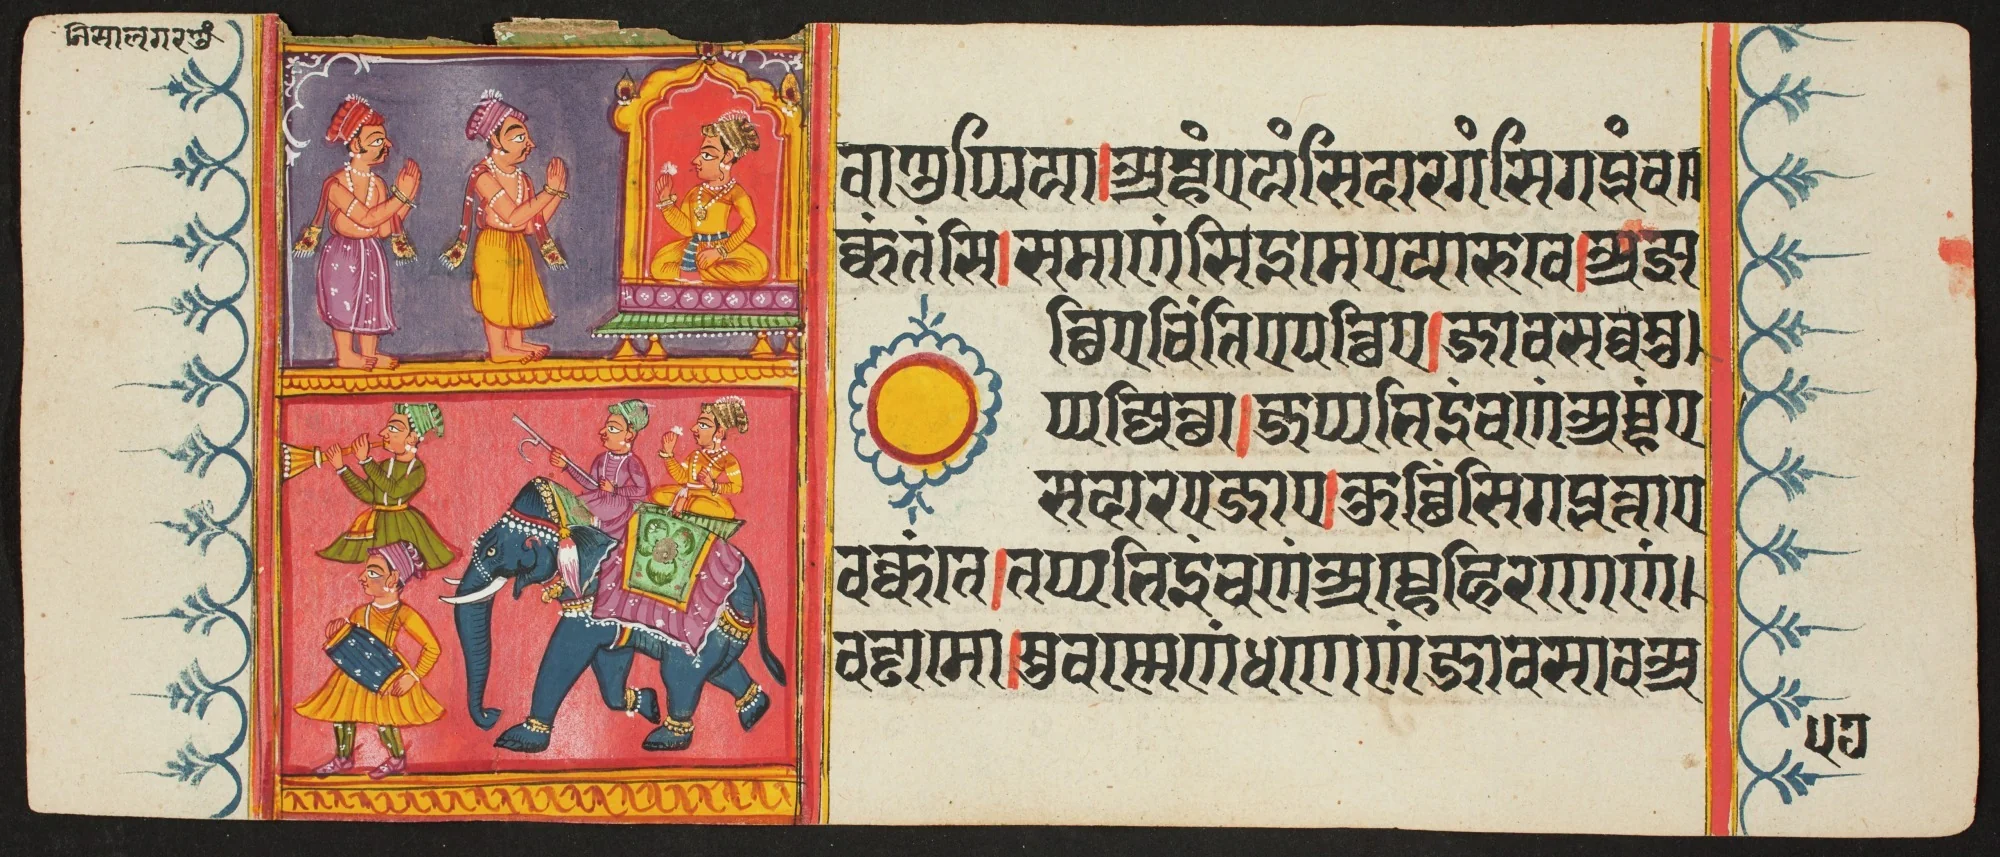 निसालगरणुं
वाणुप्पिया । अम्हं एयंसि दारगंसि गब्भंव
क्कंतंसि । समाणंसि इमे एयारूवे । अज्झ
त्थिए चिंतिए पत्थिए । जाव समुप्प
ज्जित्था । जप्पभिइं चणं अम्हं ए
स दारए जाए । कुच्छिंसि गब्भत्ताए
वक्कंते । तप्पभिइं चणं अम्हे हिरण्णेणं ।
वड्ढामो । सुवण्णेणं धणेणं जाव साव अ